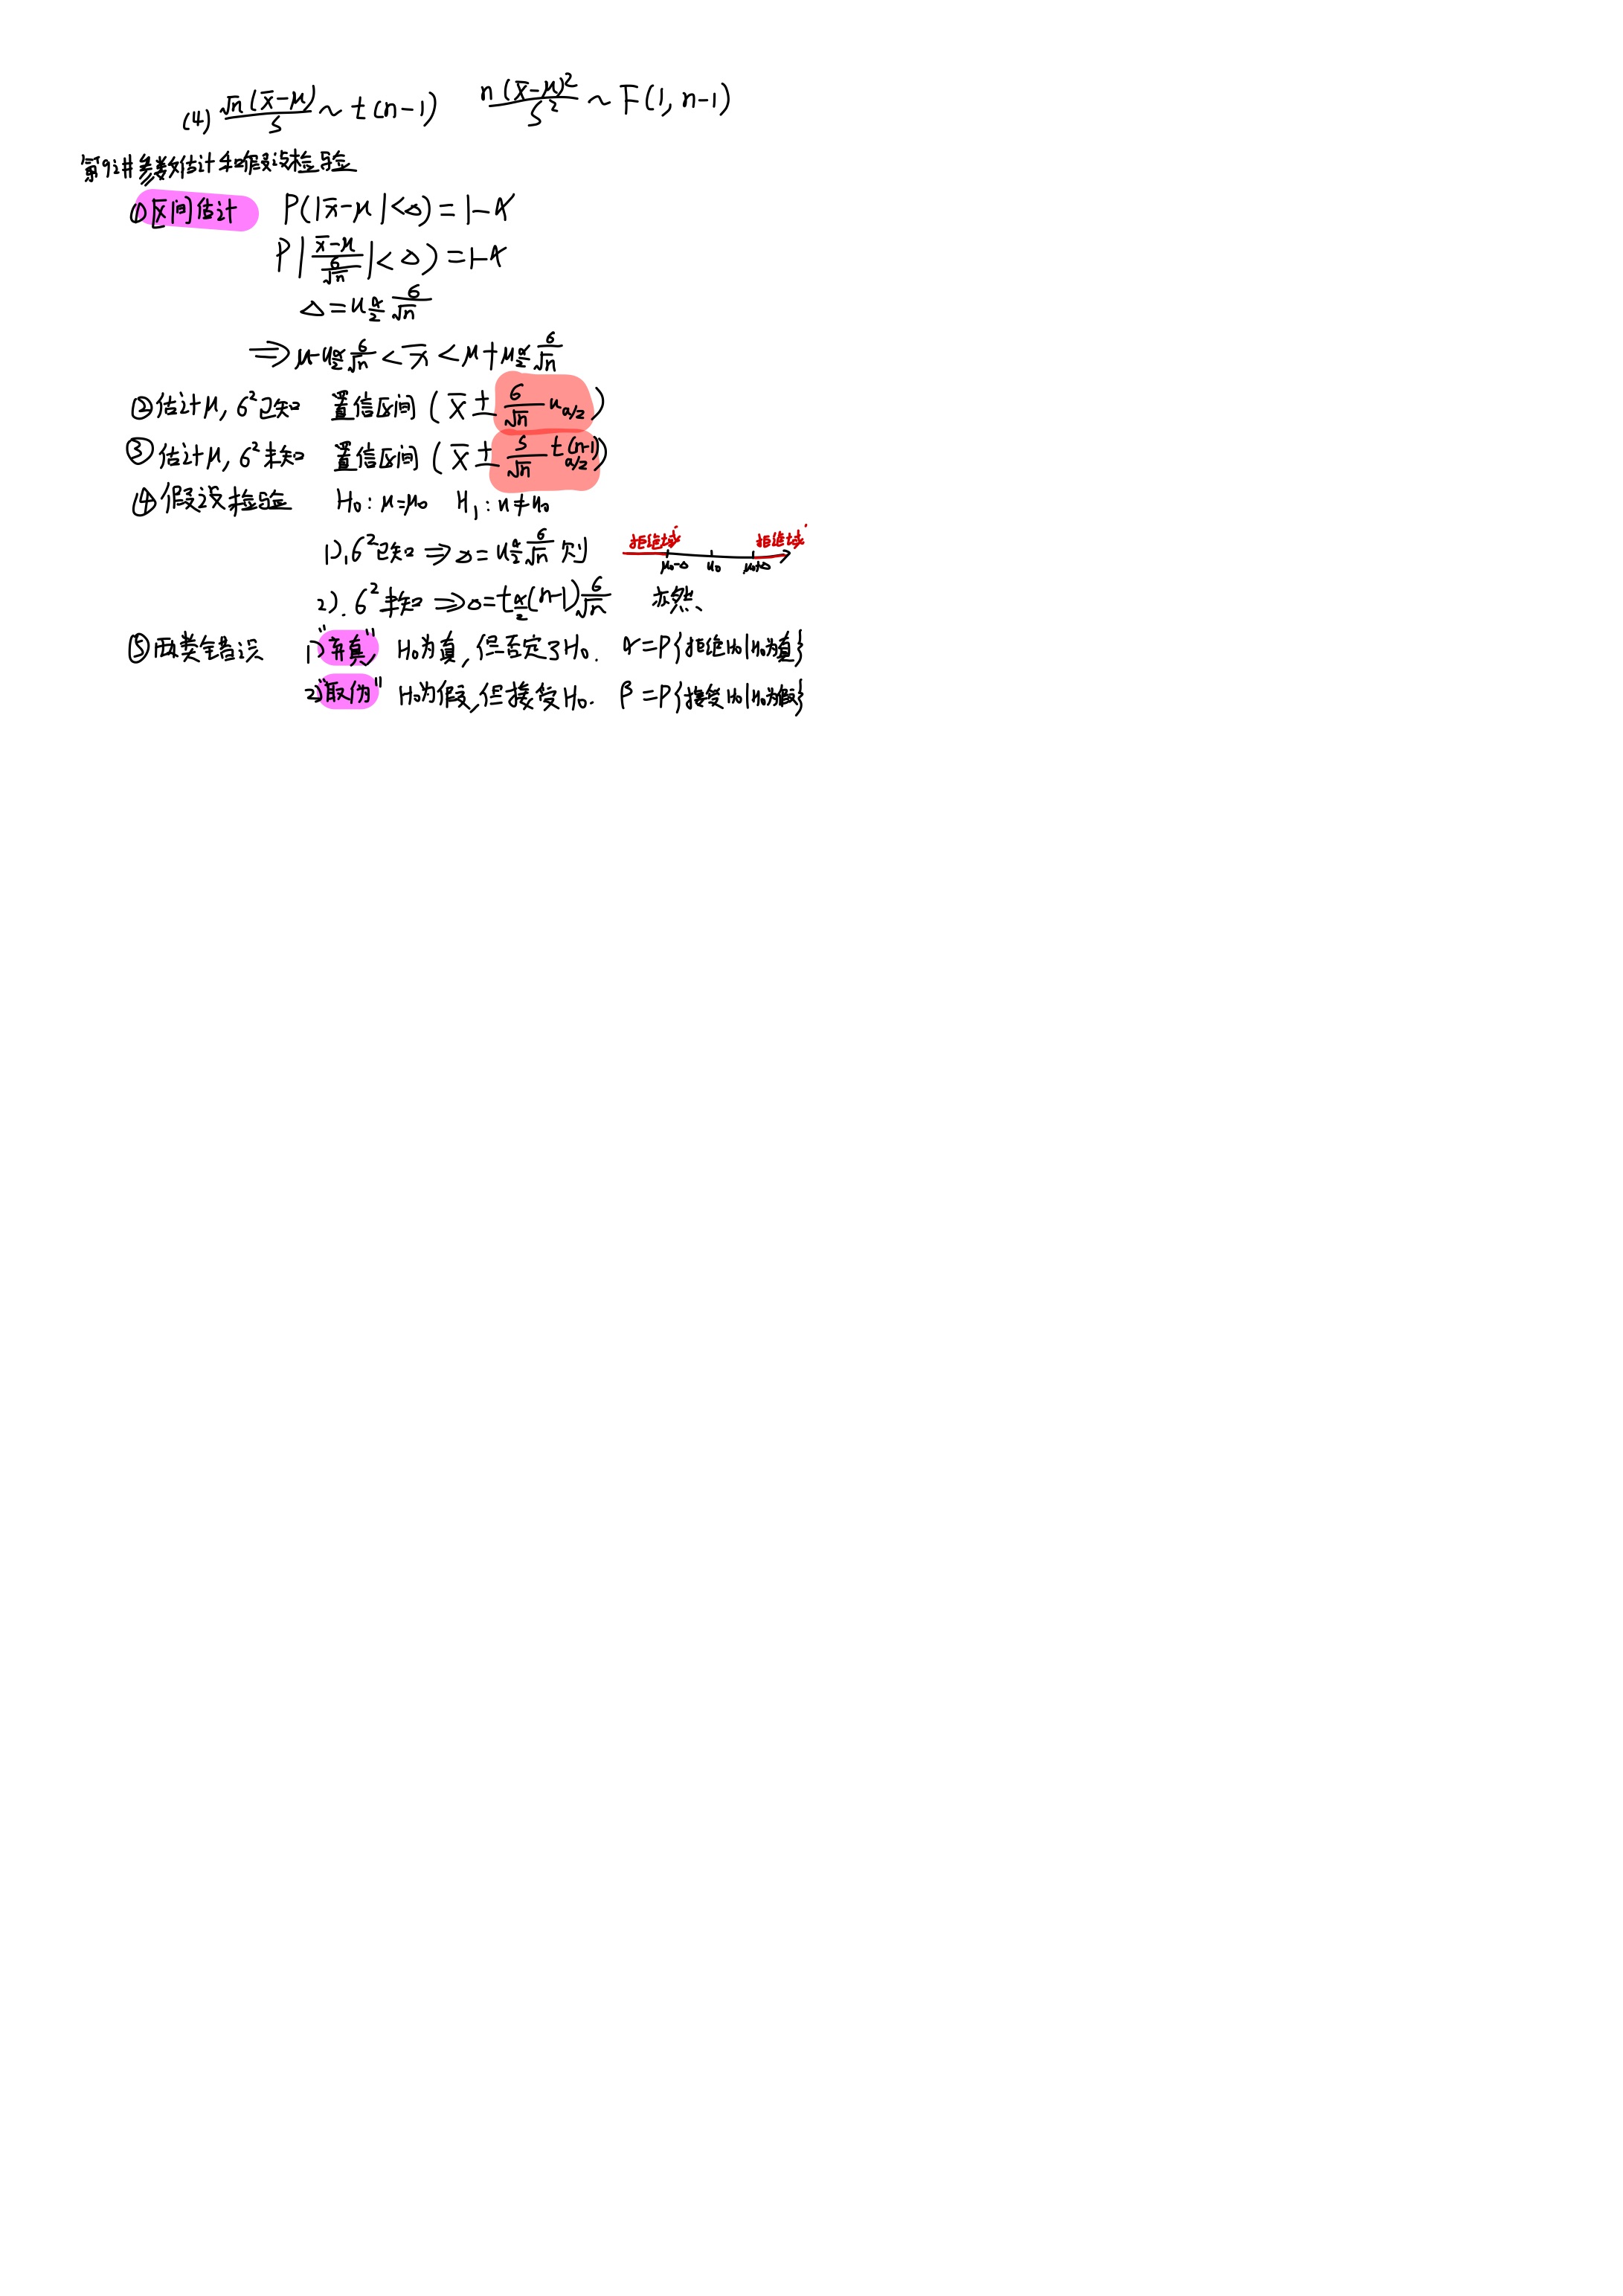 (4) √n(x̄-μ)/S ~ t(n-1) n(x̄-μ)²/S² ~ F(1, n-1)
第9讲 参数估计和假设检验
①区间估计 P(|x̄-μ|<Δ)=1-α
P|(x̄-μ)/(σ/√n)|<Δ)=1-α
Δ=u α/2 σ/√n
⇒ μ-u α/2 σ/√n < x̄ < μ+μ α/2 σ/√n
②估计μ, σ²已知 置信区间 (x̄ ± σ/√n u α/2)
③估计μ, σ²未知 置信区间 (x̄ ± S/√n t α/2 (n-1))
④假设检验 H₀: μ=μ₀ H₁: u≠u₀
1). σ²已知 ⇒ Δ= u α/2 σ/√n 则 拒绝域 拒绝域
μ₀-Δ u₀ μ₀+Δ
2). σ²未知 ⇒ Δ= t α/2 (n-1) σ/√n 亦然、
⑤两类错误 1)"弃真" H₀为真, 但否定了H₀. α=P{拒绝H₀|H₀为真}
2)"取伪" H₀为假, 但接受H₀. β=P{接受H₀|H₀为假}